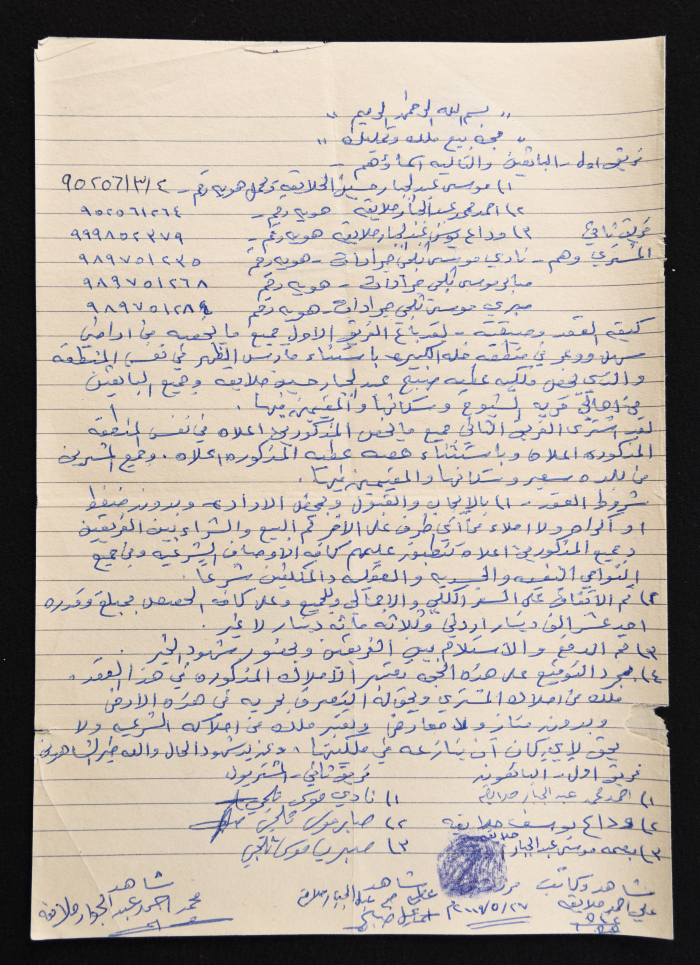 " بسم الله الرحمن الرحيم "
" حجة بيع ملك وتمليك "
فريق اول - البائعين والتاليه اسماؤهم -
١) موسى عبد الجبار حسين الحلايقة ويحمل هويه رقم - ٩٥٢٥٦١٣١٢
٢) احمد محمد عبد الجبار حلايقه هويه رقم - ٩٥٢٥٦١٢٦٤
٣) وداع يوسف عبد الجبار حلايقه هويه رقم - ٩٩٩٨٥٢٣٧٩
فريق ثاني
المشتري وهم - نادي موسى ثلجي جرادات - هويه رقم ٩٨٩٧٥١٢٣٥
صابر موسى ثلجي جرادات - هويه رقم ٩٨٩٧٥١٢٦٨
صبري موسى ثلجي جرادات - هويه رقم ٩٨٩٧٥١٢٨٤
كيفية العقد وصيغته - لقد باع الفريق الاول جميع ما يخصه من اراضي
سهل ووعر في منطقه خله الكبيره باستثناء مارس الظهر في نفس المنطقه
والذي يخص ملكيه عطيه صبيح عبد الجبار حسين حلايقه وجميع البائعين
من اهالي قريه الشيوخ وسكانها والمقيمين فيها .
لقد اشترى الفريق الثاني جميع ما يخص المذكورين اعلاه في نفس المنطقه
المذكوره اعلاه وباستثناء حصه عطيه المذكوره اعلاه . وجميع المشترين
من بلده سعير وسكانها والمقيمين فيها .
شروط العقد - ١) بالإيجاب والقبول وبمحض الاراده وبدون ضغط
او اكراه ولا املاء من أي طرف على الآخر تم البيع والشراء بين الفريقين
وجميع المذكورين اعلاه تنطبق عليهم كافه الاوصاف الشرعيه ومن جميع
النواحي النفسيه والجسديه والعقليه والمكلفين شرعاً .
٢) تم الاتفاق على السعر الكلي والاجمالي وللجميع وعلى كافه الحصص بمبلغ وقدره
احد عشر الف دينار اردني وثلاثه مائه دينار لا غير .
٣) تم الدفع والاستلام بين الفريقين وبحضور شهود الخير .
٤) بمجرد التوقيع على هذه الحجه تعتبر الأملاك المذكوره في هذا العقد .
ملك من املاك المشتري ويحق له التصرف بحريه في هذه الارض
وبدون منازع ولا معارض وتعتبر ملك من املاكه الشرعيه ولا
يحق لأي كان أن ينازعه في ملكيتها . وعزيز شهود الحال والله خير الشاهدين
فريق اول - البائعون فريق ثاني - المشترون
١) احمد محمد عبد الجبار حلايقه ١) نادي موسى ثلجي
٢) وداع يوسف حلايقه ٢) صابر موسى ثلجي
٣) بصمه موسى عبد الجبار حلايقه ٣) صبري موسى ثلجي
شاهد وكاتب شاهد شاهد
علي احمد حلايقه علي عبد الجبار حلايقه محمد احمد عبد الجبار حلايقه